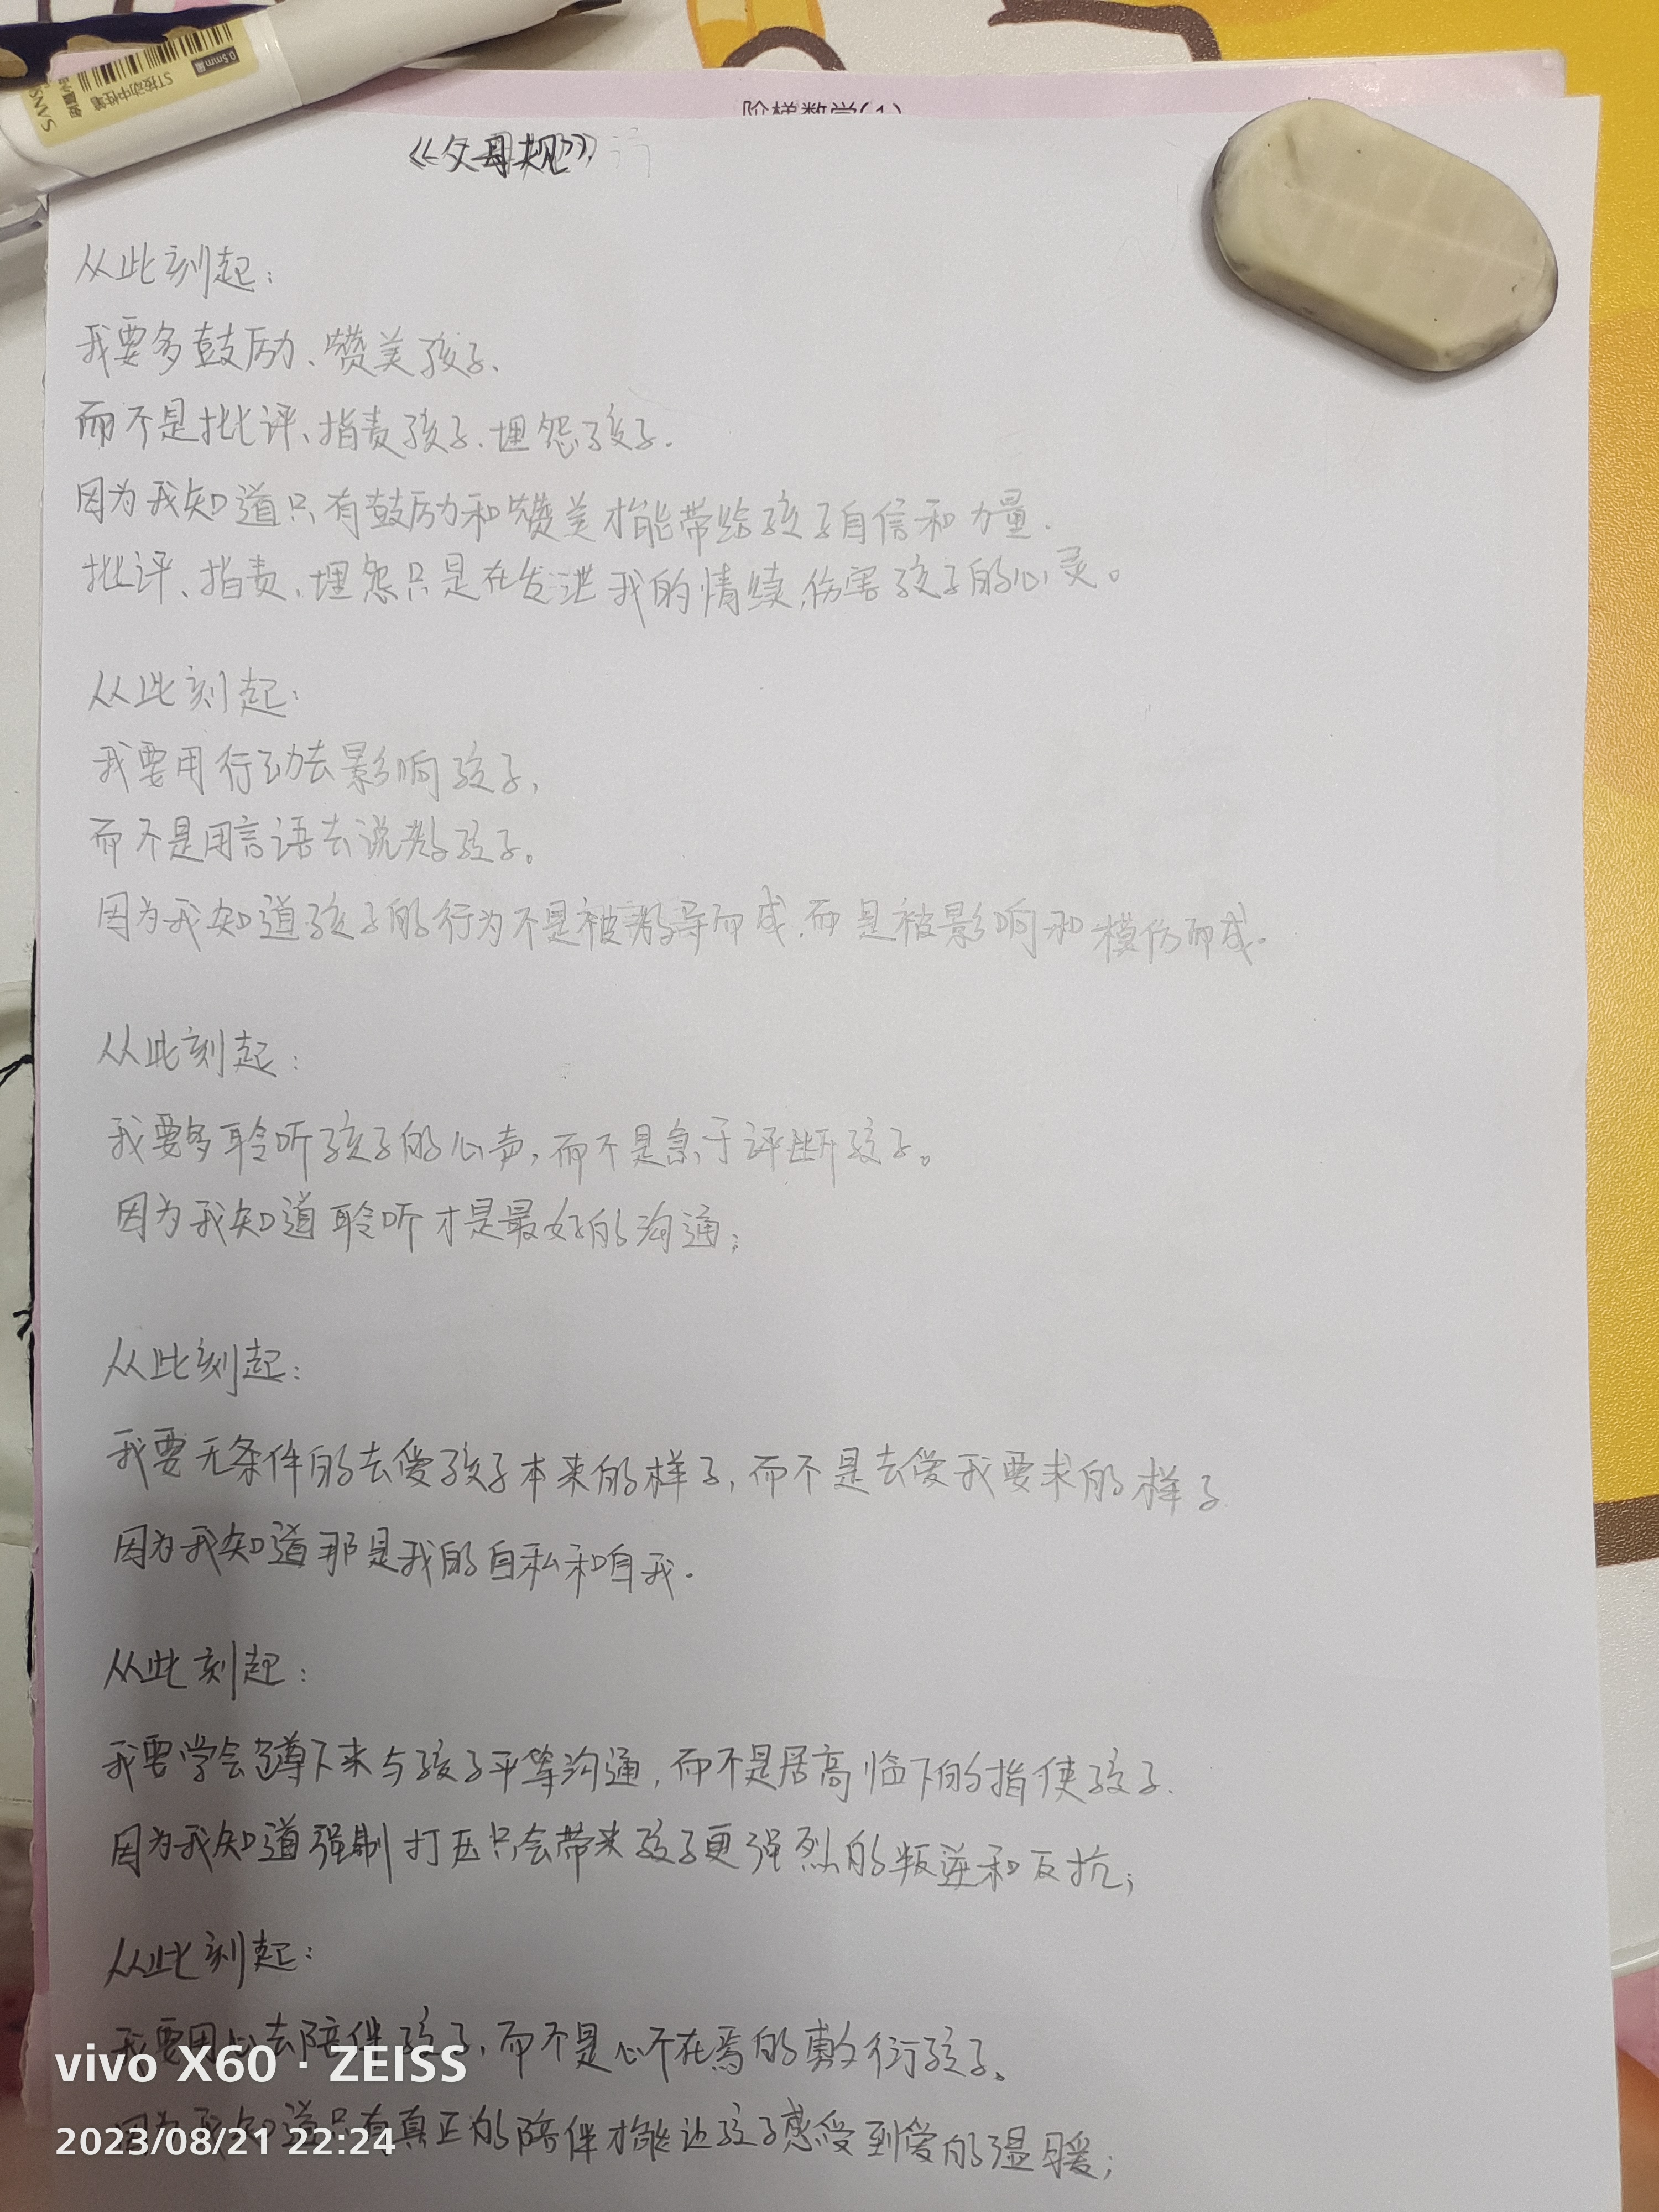 0.5mm 黑
ST按动中性笔
SANS
阶梯数学(1)
《父母规》
从此刻起：
我要多鼓励、赞美孩子、
而不是批评、指责孩子、埋怨孩子.
因为我知道只有鼓励和赞美才能带给孩子自信和力量.
批评、指责、埋怨只是在发泄我的情续,伤害孩子的心灵。
从此刻起：
我要用行动去影响孩子,
而不是用言语去说教孩子。
因为我知道孩子的行为不是被教导而成,而是被影响和模仿而成.
从此刻起：
我要多聆听孩子的心声,而不是急于评断孩子。
因为我知道聆听才是最好的沟通；
从此刻起：
我要无条件的去爱孩子本来的样子,而不是去爱我要求的样子
因为我知道那是我的自私和自我.
从此刻起：
我要学会蹲下来与孩子平等沟通,而不是居高临下的指使孩子.
因为我知道强制打压只会带来孩子更强烈的叛逆和反抗；
从此刻起：
我要用心去陪伴孩子,而不是心不在焉的敷衍孩子。
因为我知道只有真正的陪伴才能让孩子感受到爱的温暖；
vivo X60 · ZEISS
2023/08/21 22:24